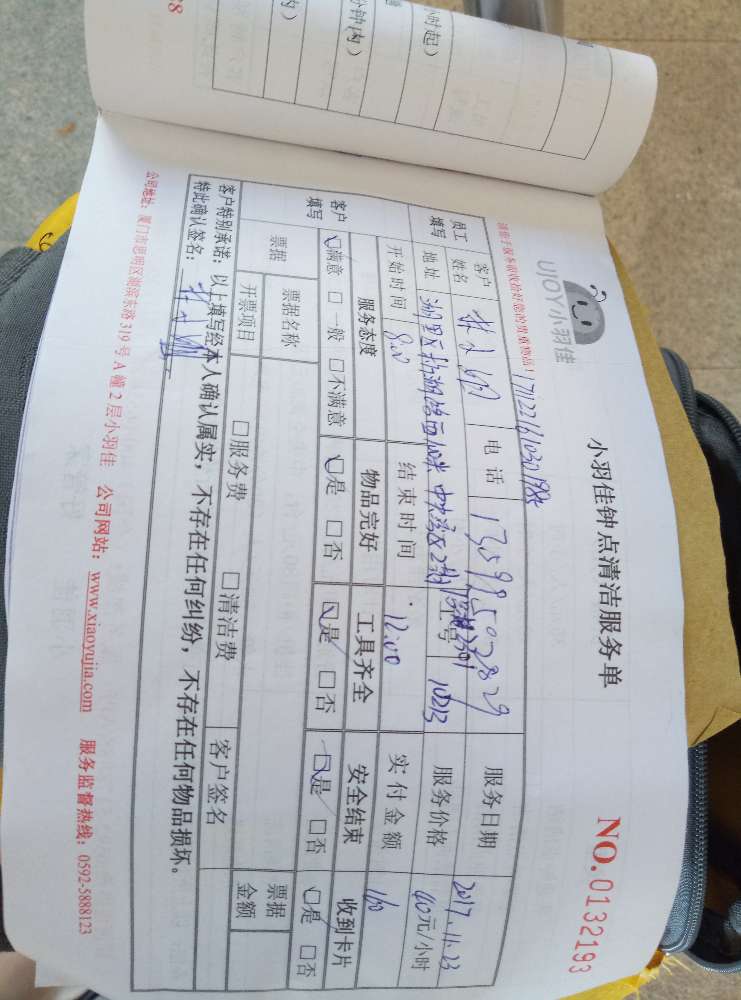 小时起）
分钟内）
内）
78
UJOY小羽佳
小羽佳钟点清洁服务单
NO.0132193
请您于服务前收拾好您的贵重物品！
客户姓名 电话 服务日期 2017.11.23
员工填写 地址 工号 10213 服务价格 40元/小时
开始时间 8:00 结束时间 12:00 实付金额 160
客户填写 服务态度 物品完好 工具齐全 安全结束 收到卡片
☑满意 □一般 □不满意 ☑是 □否 ☑是 □否 ☑是 □否 ☑是 □否
票据 票据名称 □服务费 □清洁费 客户签名 票据金额
开票项目
客户特别承诺：以上填写经本人确认属实，不存在任何纠纷，不存在任何物品损坏。
特此确认签名：
公司地址：厦门市思明区湖滨东路 319 号 A 幢 2 层小羽佳 公司网站：www.xiaoyujia.com 服务监督热线：0592-5888123